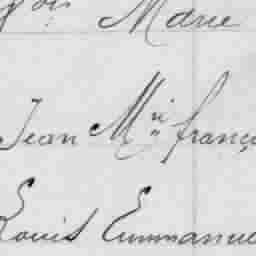 Marie
Jean M^in franç
Louis Emmanue